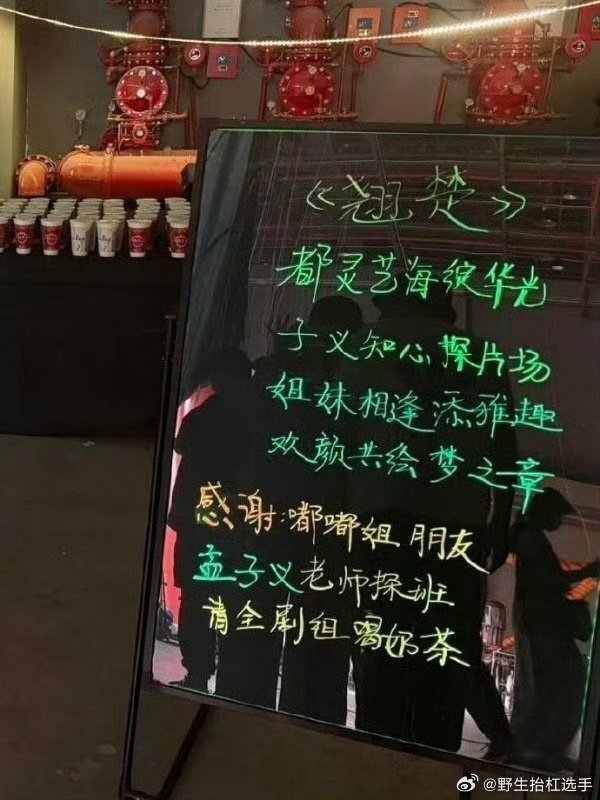 《翘楚》
都灵艺海绽华光
子义知心探片场
姐妹相逢添雅趣
欢颜共绘梦之章
感谢:嘟嘟姐朋友
孟子义老师探班
请全剧组喝奶茶
@野生抬杠选手